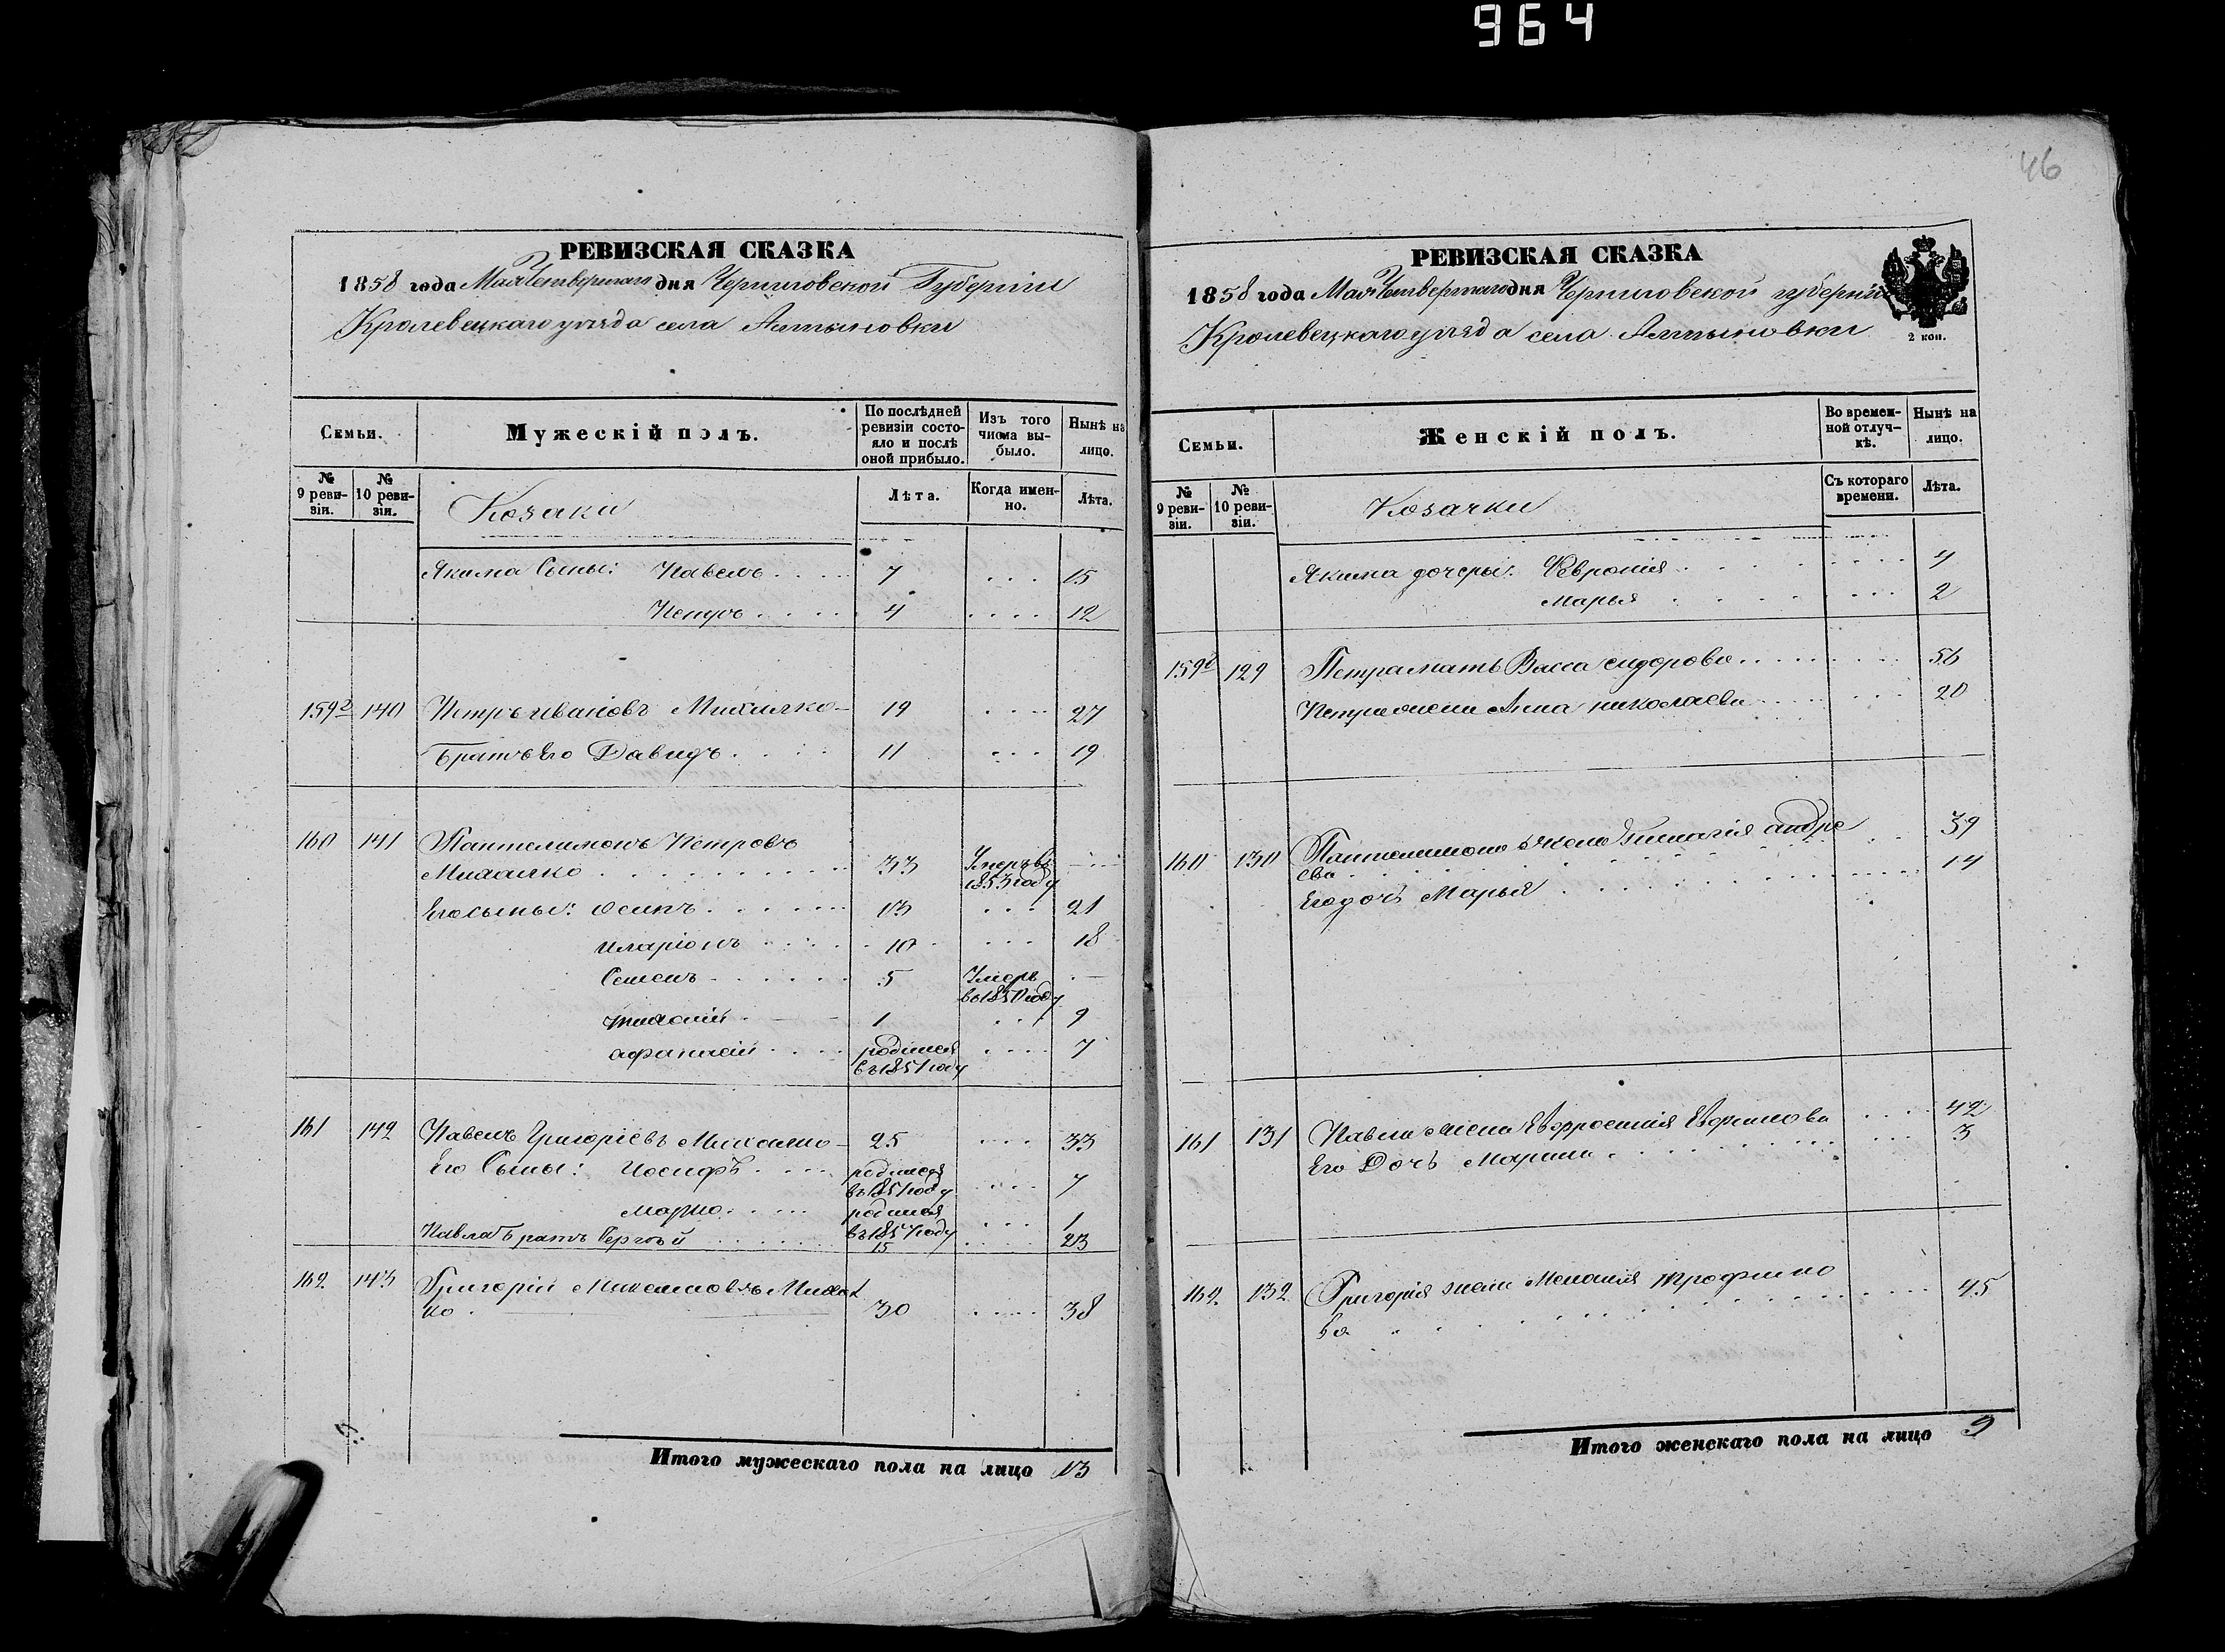 964
46
РЕВИЗСКАЯ СКАЗКА
1858 года Мая Четвертаго дня Черниговской Губерніи
Кролевецкаго уѣзда села Алтыновки
Семьи.
Мужескій полъ.
По послѣдней ревизіи состояло и послѣ оной прибыло.
Изъ того числа выбыло.
Нынѣ на лицо.
№ 9 ревизіи.
№ 10 ревизіи.
Козаки
Лѣта.
Когда именно.
Лѣта.
Якима Сыны: Павелъ 7 15
Петръ 4 12
159 2 140 Петръ Ивановъ Михалко 19 27
Братъ Его Давидъ 11 19
160 141 Пантелимонъ Петровъ
Михалко 33 Умеръ въ 1853 году
Его сыны: Осипъ 13 21
Иларіонъ 10 18
Семенъ 5 Умеръ въ 1850 году
1 9
Афанасій родился въ 1851 году 7
161 142 Павелъ Григоріевъ Михалко 25 33
Его Сыны: Іосифъ родился въ 1851 году 7
Марко родился въ 1857 году 1
Павла Братъ Сергѣй 15 23
162 143 Григорій Михал
ко 30 38
Итого мужескаго пола на лицо 13
РЕВИЗСКАЯ СКАЗКА
1858 года Мая Четвертаго дня Черниговской губерніи
Кролевецкаго уѣзда села Алтыновки
2 коп.
Семьи.
Женскій полъ.
Во временной отлучкѣ.
Нынѣ на лицо.
№ 9 ревизіи.
№ 10 ревизіи.
Козачки
Съ котораго времени.
Лѣта.
Якима дочери: Февронія 4
Марья 2
159 2 129 Петра мать Васса Сидорова 56
Петра жена Анна Николаева 20
160 130 Пантелимона жена Андре
ева 39
Его дочь Марья 14
161 131 Павла жена Ефросинія 42
Его Дочь Марина 3
162 132 Григорія жена Меланія Трофимо
ва 45
Итого женскаго пола на лицо 9